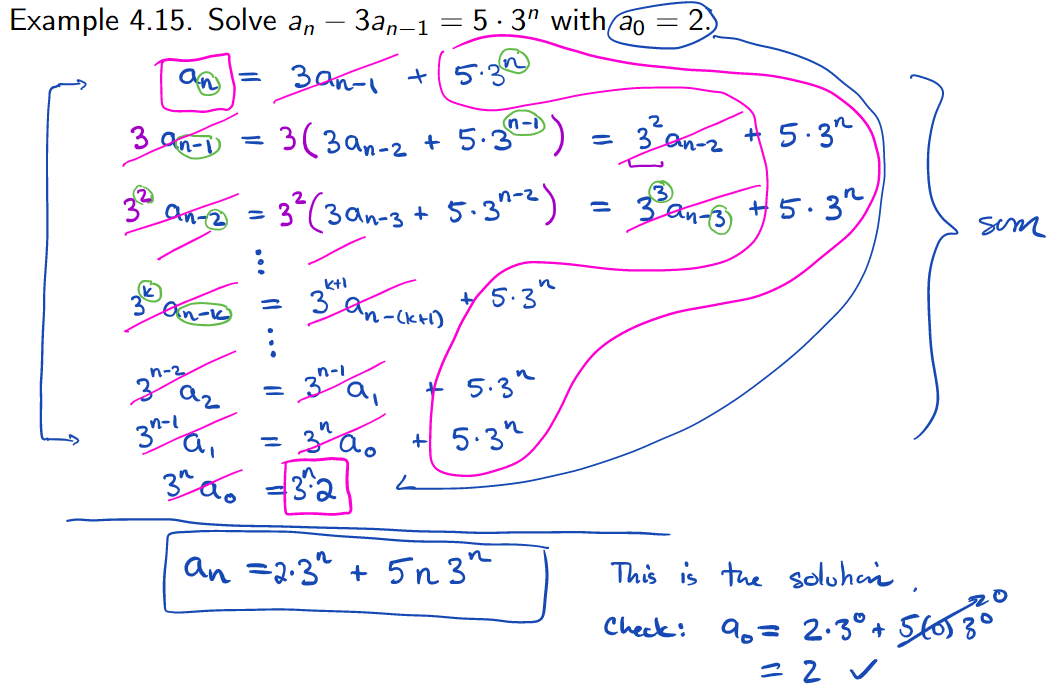 Example 4.15. Solve aₙ − 3aₙ₋₁ = 5 · 3ⁿ with a₀ = 2.
aₙ = 3aₙ₋₁ + 5·3ⁿ
3 aₙ₋₁ = 3(3aₙ₋₂ + 5·3ⁿ⁻¹) = 3²aₙ₋₂ + 5·3ⁿ
3² aₙ₋₂ = 3²(3aₙ₋₃ + 5·3ⁿ⁻²) = 3³aₙ₋₃ + 5·3ⁿ
sum
⋮
3ᵏ aₙ₋ₖ = 3ᵏ⁺¹ aₙ₋₍ₖ₊₁₎ + 5·3ⁿ
⋮
3ⁿ⁻² a₂ = 3ⁿ⁻¹ a₁ + 5·3ⁿ
3ⁿ⁻¹ a₁ = 3ⁿ a₀ + 5·3ⁿ
3ⁿ a₀ = 3ⁿ·2
aₙ = 2·3ⁿ + 5n3ⁿ
This is the solution.
Check: a₀ = 2·3⁰ + 5(0)3⁰ → 0
= 2 ✓